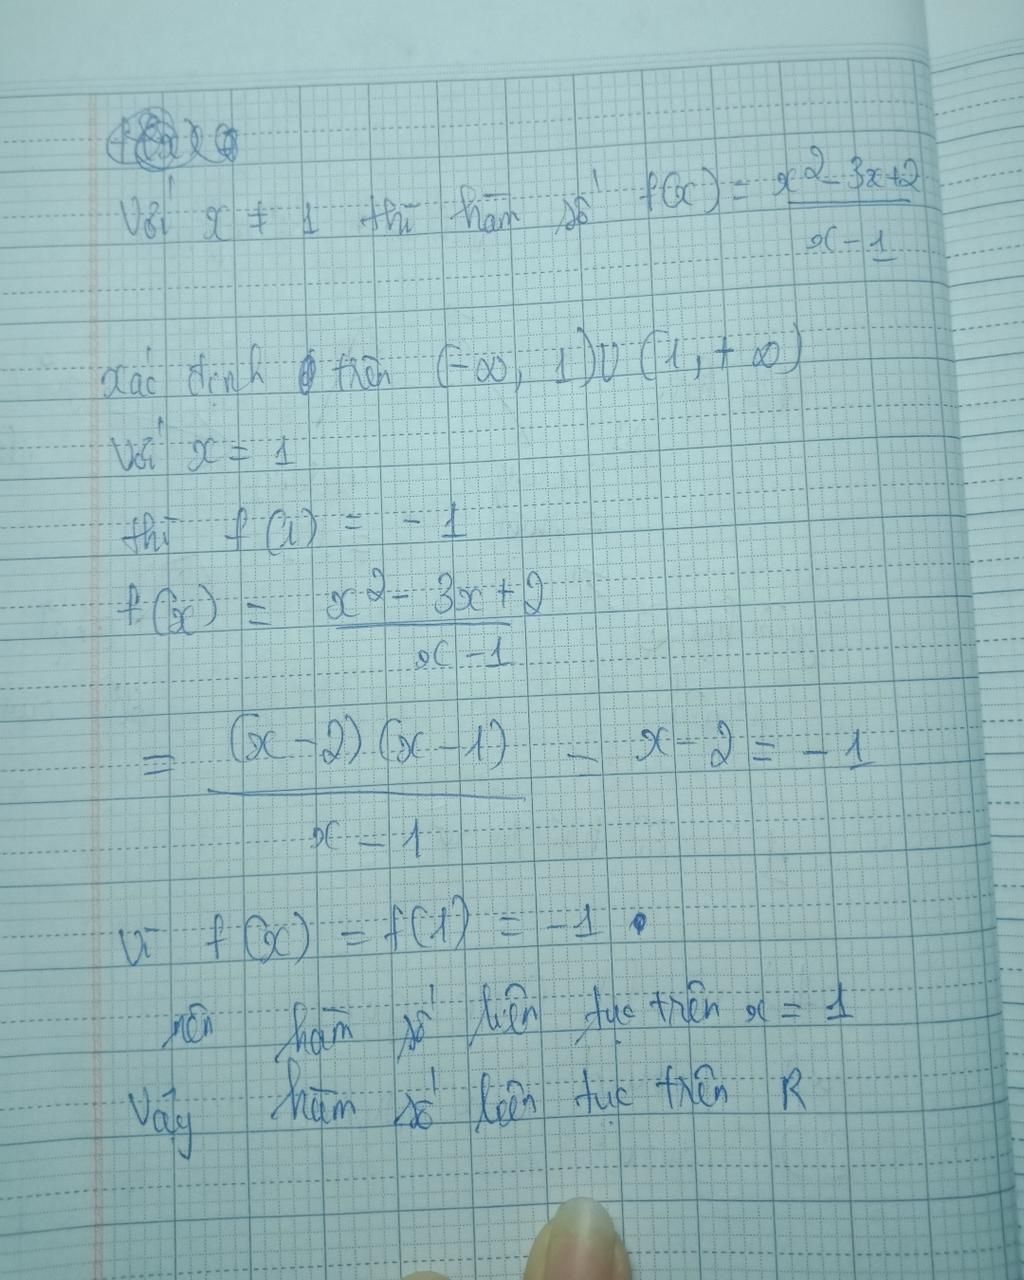 Với x ≠ 1 thì hàm số f(x) = x² - 3x + 2 / x - 1
xác định trên (-∞, 1) ∪ (1, +∞)
Với x = 1
thì f(1) = - 1
f(x) = x² - 3x + 2 / x - 1
= (x - 2).(x - 1) / x - 1 = x - 2 = - 1
Vì f(x) = f(1) = -1
nên hàm số liên tục trên x = 1
Vậy hàm số liên tục trên R